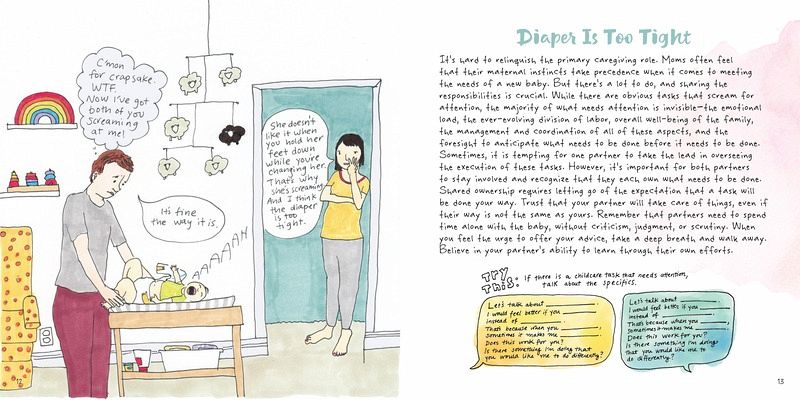 C'mon
for crapsake.
WTF.
Now I've got
both of you
screaming
at me!
It's fine
the way it is.
AAAAAAH
She doesn't
like it when
you hold her
feet down
while you're
changing her.
That's why
she's screaming.
And I think
the diaper
is too
tight.
12
Diaper Is Too Tight
It's hard to relinquish the primary caregiving role. Moms often feel
that their maternal instincts take precedence when it comes to meeting
the needs of a new baby. But there's a lot to do, and sharing the
responsibilities is crucial. While there are obvious tasks that scream for
attention, the majority of what needs attention is invisible—the emotional
load, the ever-evolving division of labor, overall well-being of the family,
the management and coordination of all of these aspects, and the
foresight to anticipate what needs to be done before it needs to be done.
Sometimes, it is tempting for one partner to take the lead in overseeing
the execution of these tasks. However, it's important for both partners
to stay involved and recognize that they each own what needs to be done.
Shared ownership requires letting go of the expectation that a task will
be done your way. Trust that your partner will take care of things, even if
their way is not the same as yours. Remember that partners need to spend
time alone with the baby, without criticism, judgment, or scrutiny. When
you feel the urge to offer your advice, take a deep breath and walk away.
Believe in your partner's ability to learn through their own efforts.
TRY THIS: If there is a childcare task that needs attention,
talk about the specifics.
Let's talk about ________.
I would feel better if you ________
instead of ________.
That's because when you ________,
sometimes it makes me ________.
Does this work for you?
Is there something I'm doing that
you would like me to do differently?
Let's talk about ________.
I would feel better if you ________
instead of ________.
That's because when you ________,
sometimes it makes me ________.
Does this work for you?
Is there something I'm doing
that you would like me to
do differently?
13